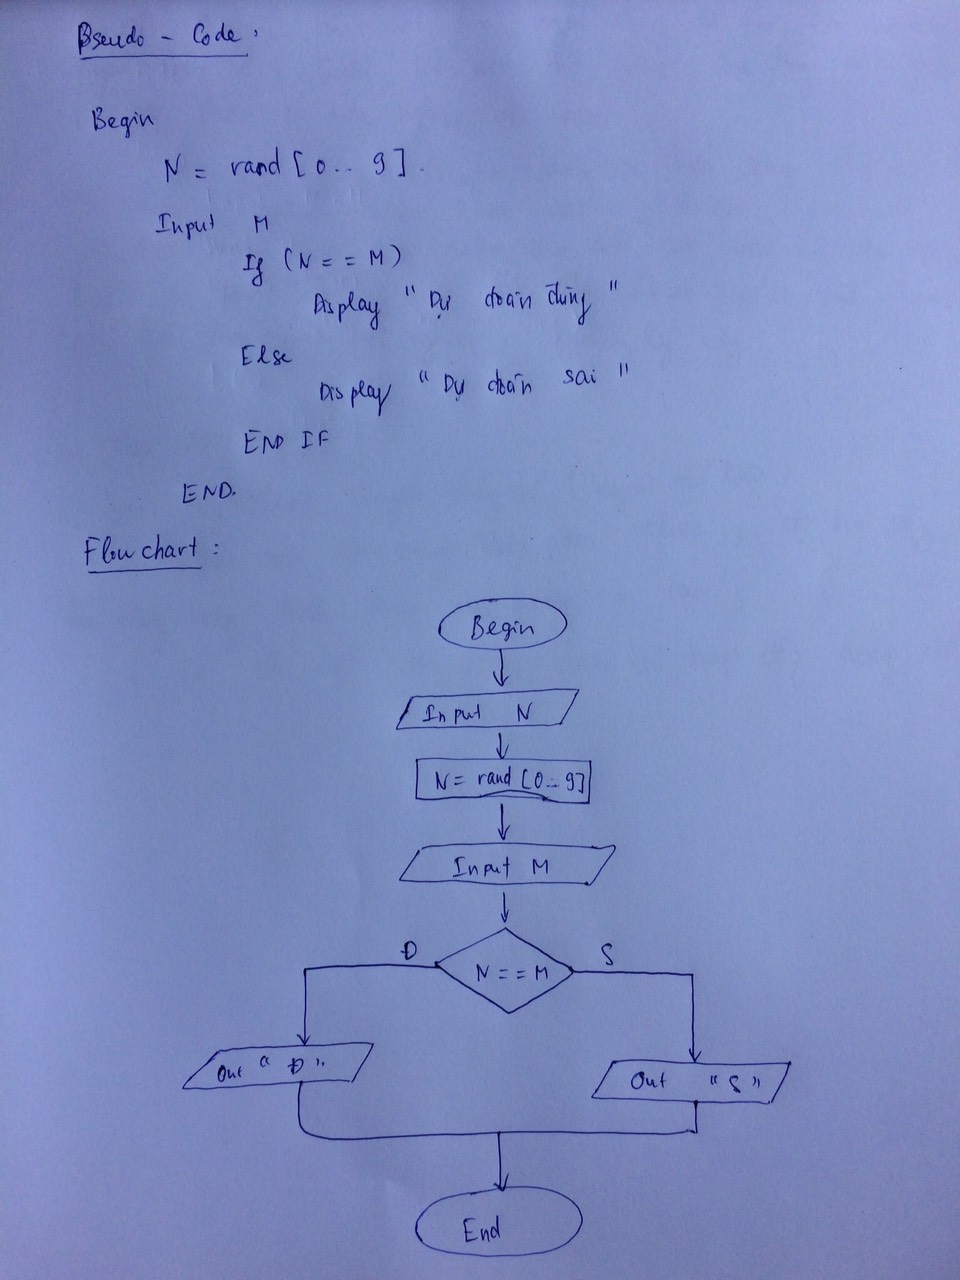 Pseudo - Code:
Begin
N = rand [0..9].
Input M
If (N == M)
Display "Dự đoán đúng"
Else
Display "Dự đoán sai"
END IF
END.
Flowchart:
Begin
Input N
N = rand [0..9]
Input M
N == M
Đ
S
Out "Đ"
Out "S"
End